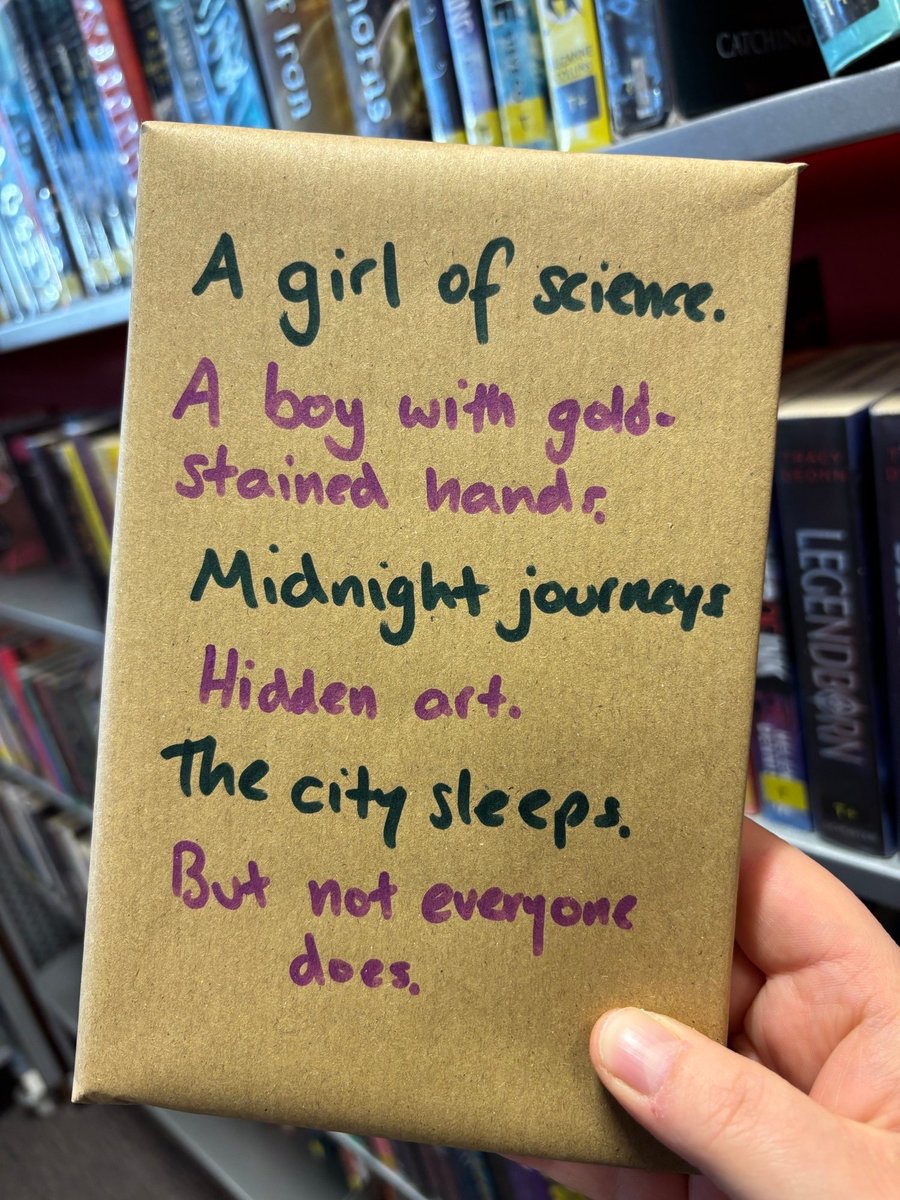 f Iron
horns
CATCHING
A girl of science.
A boy with gold-
stained hands.
Midnight journeys
Hidden art.
The city sleeps.
But not everyone
does.
TRACY
DEONN
LEGENDBORN